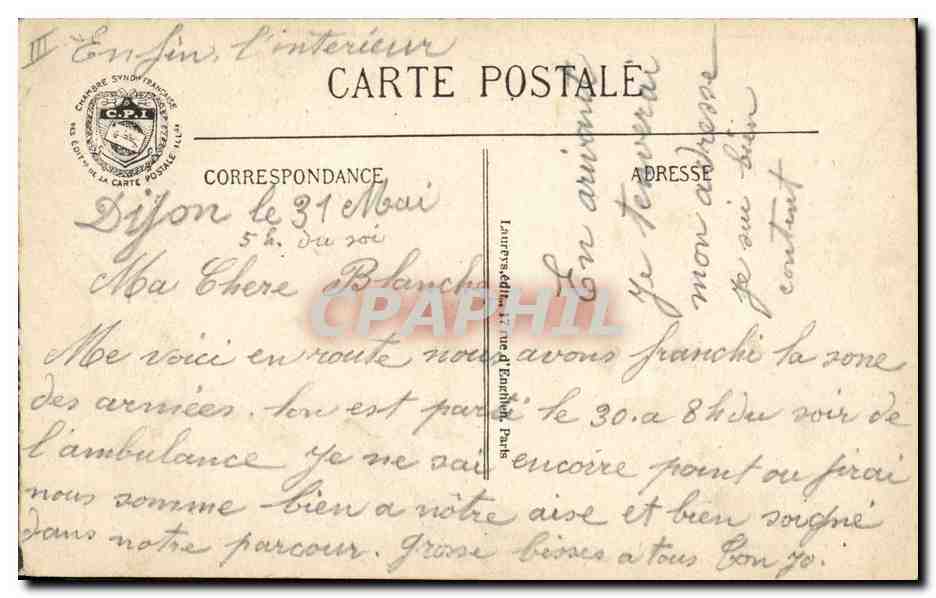 III Enfin, l'interieur
CARTE POSTALE
CHAMBRE SYND. FRANÇAISE
C.P.I
DES ÉDITrs DE LA CARTE POSTALE ILLée
CORRESPONDANCE
ADRESSE
Dijon le 31 Mai
5 h. du soi
Ma Chere Blanche
Me voici en route nous avons franchi la zone
des armées. lon est parti le 30. a 8h du soir de
l'ambulance Je ne sai encoire point ou jirai
nous somme bien a nôtre aise et bien soigné
dans notre parcour. Grosse bisses a tous Ton Jo.
En arivant
Je tenverai
mon adresse
Je sui bien
content
Laureys, édit., 17 rue d'Enghien, Paris
CPAPHIL